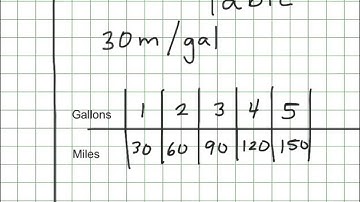 Table
30m/gal
Gallons 1 2 3 4 5
Miles 30 60 90 120 150